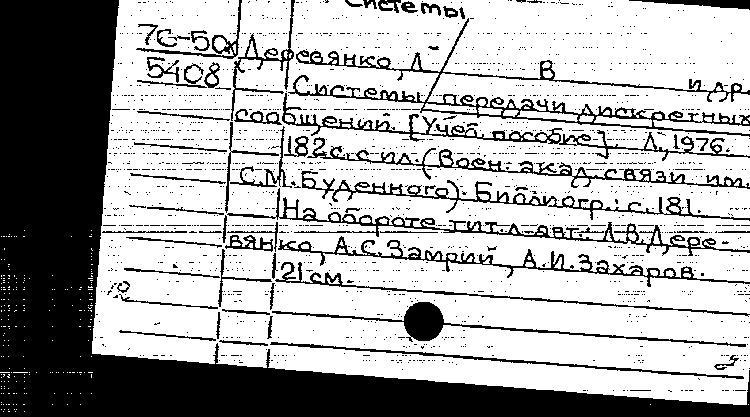 Системы
76-50х Деревянко, Л В и др.
5408 Системы передачи дискретных
сообщений. [Учеб. пособие]. Л., 1976.
182 с. с ил. (Воен. акад. связи им.
С.М. Буденного). Библиогр.: с. 181.
На обороте тит. л. авт.: Л.В. Дере-
вянко, А.С. Замрий, А.И. Захаров.
21 см.